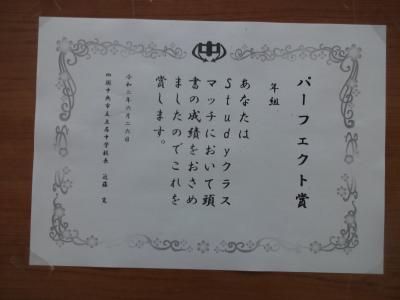 パーフェクト賞
年組
あなたは
Studyクラス
マッチにおいて頭
書の成績をおさめ
ましたのでこれを
賞します。
令和二年六月二六日
四国中央市立土居中学校長 近藤 寛